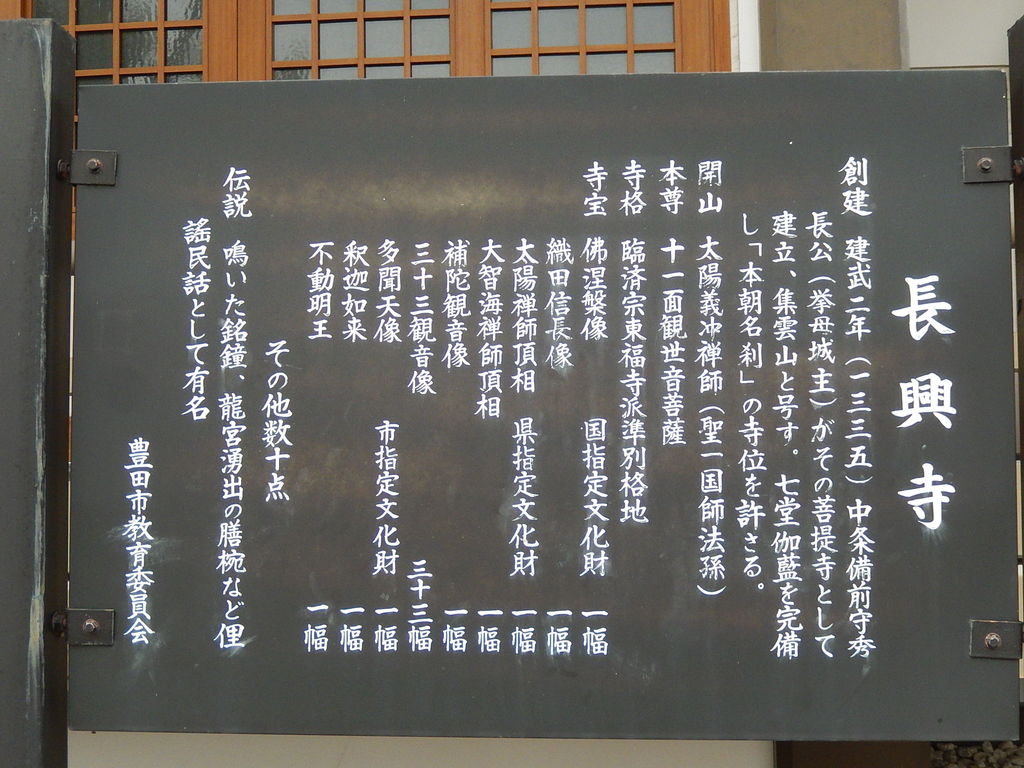 長興寺
創建 建武二年（一三三五）中条備前守秀
長公（挙母城主）がその菩提寺として
建立、集雲山と号す。七堂伽藍を完備
し「本朝名刹」の寺位を許さる。
開山 太陽義冲禅師（聖一国師法孫）
本尊 十一面観世音菩薩
寺格 臨済宗東福寺派準別格地
寺宝 佛涅槃像 国指定文化財 一幅
織田信長像 一幅
太陽禅師頂相 県指定文化財 一幅
大智海禅師頂相 一幅
補陀観音像 一幅
三十三観音像 三十三幅
多聞天像 市指定文化財 一幅
釈迦如来 一幅
不動明王 一幅
その他数十点
伝説 鳴いた銘鐘、龍宮湧出の膳椀など俚
謡民話として有名
豊田市教育委員会